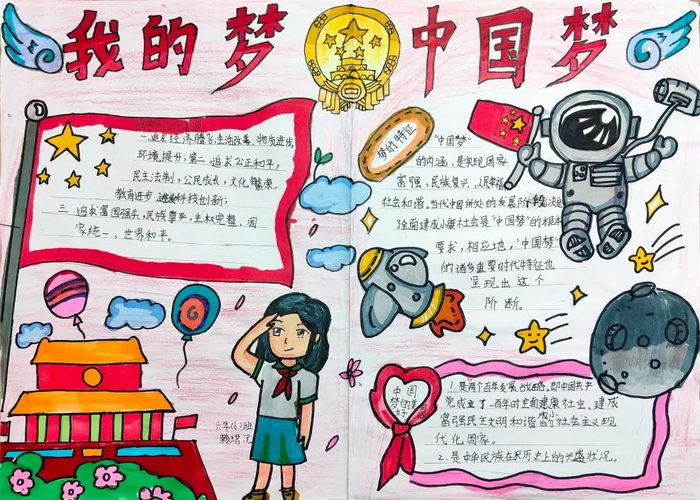 我的梦 中国梦
一追求经济腾飞,生活改善,物质进步,
环境提升;第二 追求公正和平,
民主法制,公民成长,文化繁荣,
教育进步 科技创新;
三 追求富国强兵,民族尊严,主权完整,国
家统一、世界和平。
梦的特征
“中国梦”
的内涵,是实现国家
富强、民族复兴、人民幸福
社会和谐,当代中国所处的发展阶段,
了全面建成小康社会是“中国梦”的根本
要求,相应地,“中国梦”
的诸多重要时代特征也
呈现出这个
阶断。
中国
梦的
1.是两个百年发展战略,即中国共产
党成立了一百年时全面建康社会,建成
富强民主文明和谐的社会主义现
代化国家。
2.是中华民族在历史上的兴盛状况。